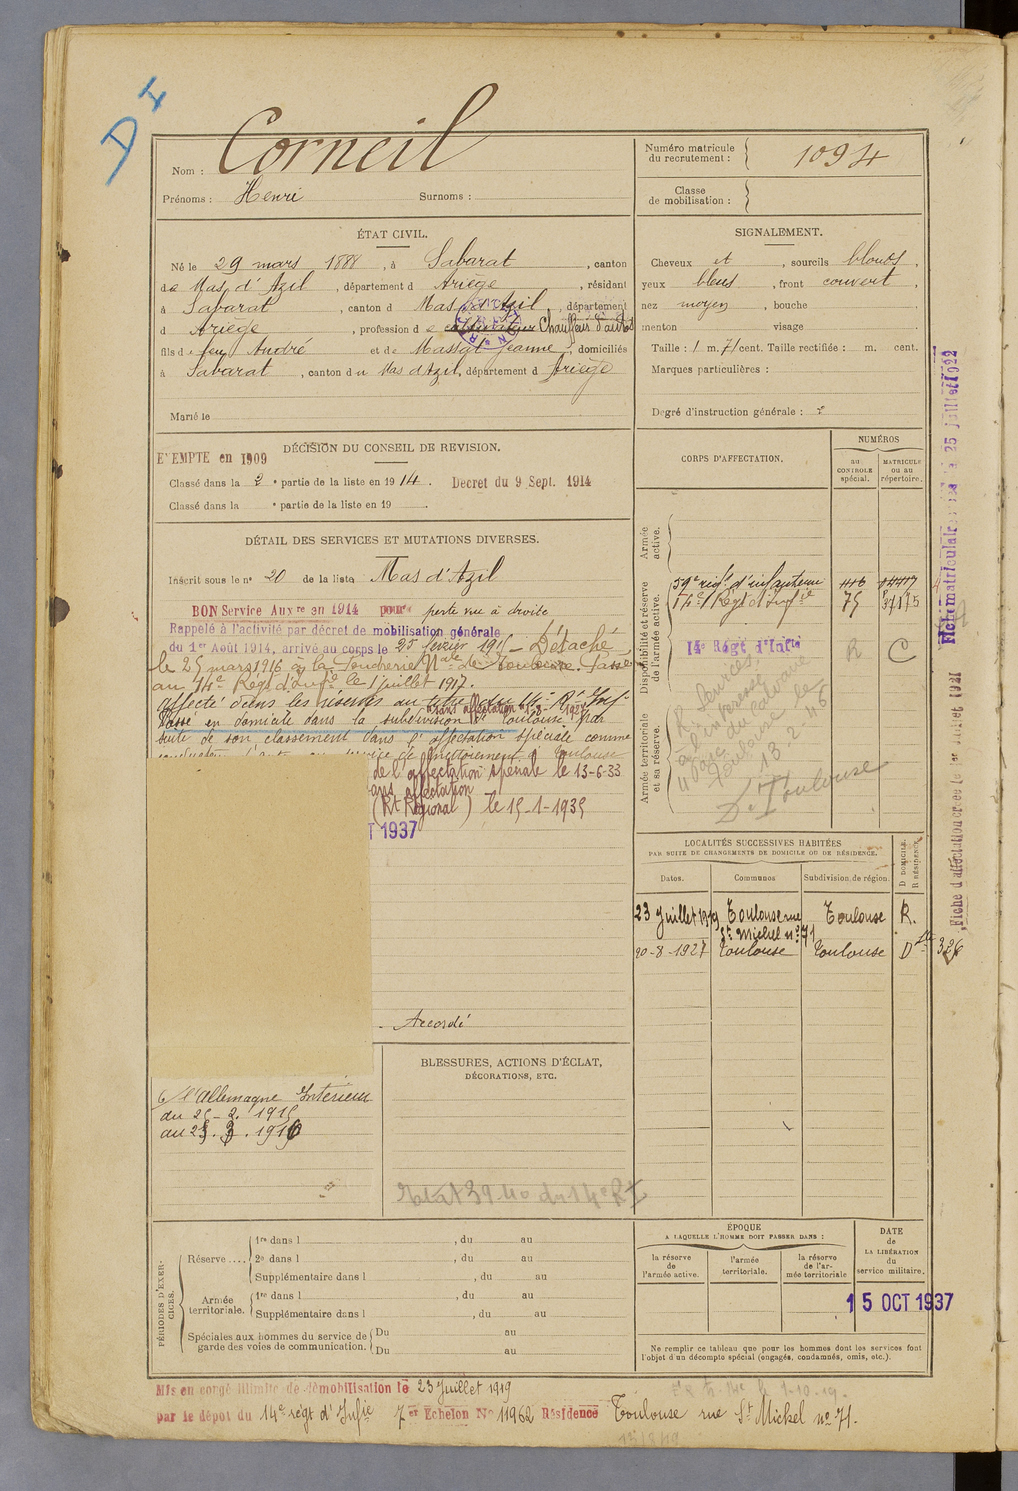 D 4
Nom : Corneil
Prénoms : Henri Surnoms :
Numéro matricule du recrutement : 1094
Classe de mobilisation :
ÉTAT CIVIL.
Né le 29 mars 1888, à Sabarat, canton
de Mas d'Azil, département d Ariège, résidant
à Sabarat, canton d Mas d'Azil, département
d Ariège, profession de cultivateur Chauffeur d'autos
fils de feu André et de Massat Jeanne, domiciliés
à Sabarat, canton du Mas d'Azil, département d Ariège
Marié le
SIGNALEMENT.
Cheveux et, sourcils blonds,
yeux bleus, front couvert,
nez moyen, bouche
menton visage
Taille : 1 m. 71 cent. Taille rectifiée : m. cent.
Marques particulières :
Degré d'instruction générale : 2
DÉCISION DU CONSEIL DE REVISION.
EXEMPTE en 1909
Classé dans la 2e partie de la liste en 1914. Decret du 9 Sept. 1914
Classé dans la e partie de la liste en 19 .
DÉTAIL DES SERVICES ET MUTATIONS DIVERSES.
Inscrit sous le n° 20 de la liste Mas d'Azil
BON Service Auxre en 1914 pour perte vue à droite
Rappelé à l'activité par décret de mobilisation générale
du 1er Août 1914, arrivé au corps le 25 février 1915 - Détaché
le 25 mars 1916 à la Poudrerie Nale de Toulouse. Passé
au 14e Régt d'Infie le 1 juillet 1917.
Affecté dans les réserves au 14e Rt Inf.
sans affectation
Passé en domicile dans la subdivision de Toulouse par
suite de son classement dans l'affectation spéciale comme
Toulouse
de l'affectation spéciale le 13-6-33
sans affectation
(Rt Régional) le 15-1-1935
T 1937
Accordé
CORPS D'AFFECTATION.
NUMÉROS
au CONTROLE spécial.
MATRICULE ou au répertoire.
Armée active.
Disponibilité et réserve de l'armée active.
59e régt d'infanterie 416
14e Régt d'Infie 75
14e Régt d'Infie R C
Armée territoriale et sa réserve.
Toulouse le
13-2-46
De Toulouse
LOCALITÉS SUCCESSIVES HABITÉES
PAR SUITE DE CHANGEMENTS DE DOMICILE OU DE RÉSIDENCE.
Dates. Communes Subdivision de région. D DOMICILE. R RÉSIDENCE.
23 Juillet 1919 Toulouse rue St Michel n° 71 Toulouse R.
20-8-1927 Toulouse Toulouse D
326
Fiche matriculaire le 25 juillet 1922
Fiche d'affectation créée le 1er Juillet 1921
Cre l'Allemagne Intérieur
du 25-2. 1915
au 25. 3. 1916
BLESSURES, ACTIONS D'ÉCLAT,
DÉCORATIONS, ETC.
39-40 du 14e RI
PÉRIODES D'EXERCICES.
Réserve.... 1re dans l , du au
2e dans l , du au
Supplémentaire dans l , du au
Armée territoriale. 1re dans l , du au
Supplémentaire dans l , du au
Spéciales aux hommes du service de garde des voies de communication. Du au
Du au
ÉPOQUE
A LAQUELLE L'HOMME DOIT PASSER DANS :
la réserve de l'armée active.
l'armée territoriale.
la réserve de l'armée territoriale
DATE de LA LIBÉRATION du service militaire.
15 OCT 1937
Ne remplir ce tableau que pour les hommes dont les services font
l'objet d'un décompte spécial (engagés, condamnés, omis, etc.).
Mis en congé illimité de démobilisation le 23 Juillet 1919
par le dépôt du 14e régt d'Infie 7er Echelon No 11962 Résidence Toulouse rue St Michel no 71.